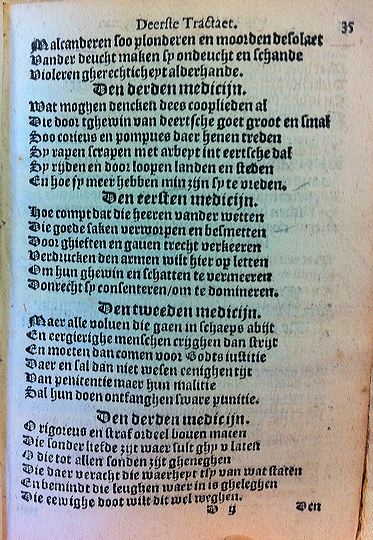 Deerste Tractaet. 35
Malcanderen soo plonderen en moorden desolaet
Vander deucht maken sy ondeucht en schande
Violeren gherechticheyt alderhande.
Den derden medicijn.
Wat moghen dencken dees cooplieden al
Die door tghewin van deertsche goet groot en smal
Soo corieus en pompues daer henen treden
Sy rapen scrapen met arbeyt int eertsche dal
Sy rijden en door loopen landen en steden
En hoe sy meer hebben min zijn sy te vreden.
Den eersten medicijn.
Hoe compt dat die heeren vander wetten
Die goede saken verworpen en besmetten
Door ghieften en gauen trecht verkeeren
Verdrucken den armen wilt hier op letten
Om hun ghewin en schatten te vermeeren
Donrecht sy consenteren/om te domineren.
Den tweeden medicijn.
Maer alle voluen die gaen in schaeps abijt
En eergierighe menschen crijghen dan strijt
En moeten dan comen voor Godts iustitie
Daer en sal dan niet wesen eenighen tijt
Van penitentie maer hun malitie
Sal hun doen ontfanghen sware punitie.
Den derden medicijn.
O rigoreus en straf ordeel bouen maten
Die sonder liefde zijt waer suit ghy v laten
O die tot allen sonden zijt gheneghen
Die daer veracht die waerheyt tsy van wat staten
En bemindt die leughen waer in is gheleghen
Die eewighe doot wilt dit wel weghen.
D ij Den